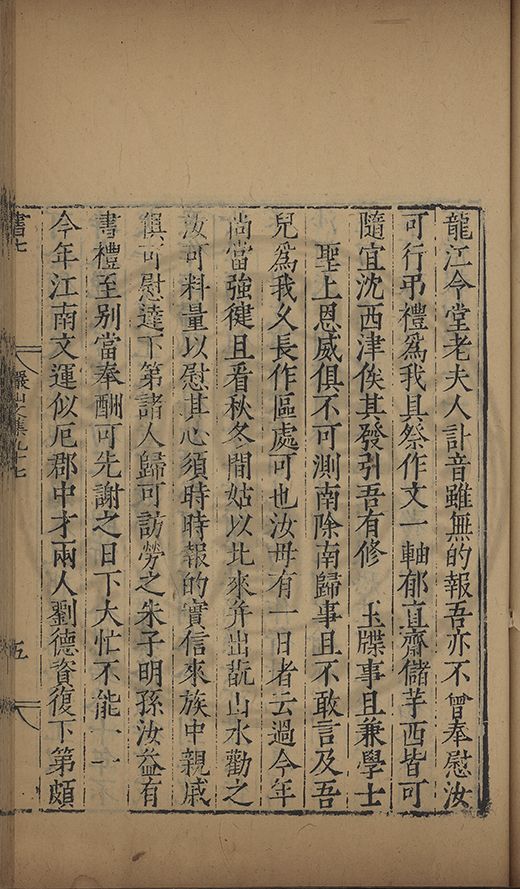 龍江令堂老夫人訃音雖無的報吾亦不曾奉慰汝
可行弔禮爲我具祭作文一軸郁直齋儲芋西皆可
隨宜沈西津俟其發引吾有修　玉牒事且兼學士
聖上恩威俱不可測南除南歸事且不敢言及吾
兒爲我乆長作區處可也汝毋有一日者云過今年
尚當強健且看秋冬間姑以比來并出翫山水勸之
汝可料量以慰其心須時時報的實信來族中親戚
俱可慰達下第諸人歸可訪勞之朱子明孫汝益有
書禮至别當奉酬可先謝之日下大忙不能一一
今年江南文運似厄郡中才兩人劉德資復下第頗
書七
儼山文集九十七
五